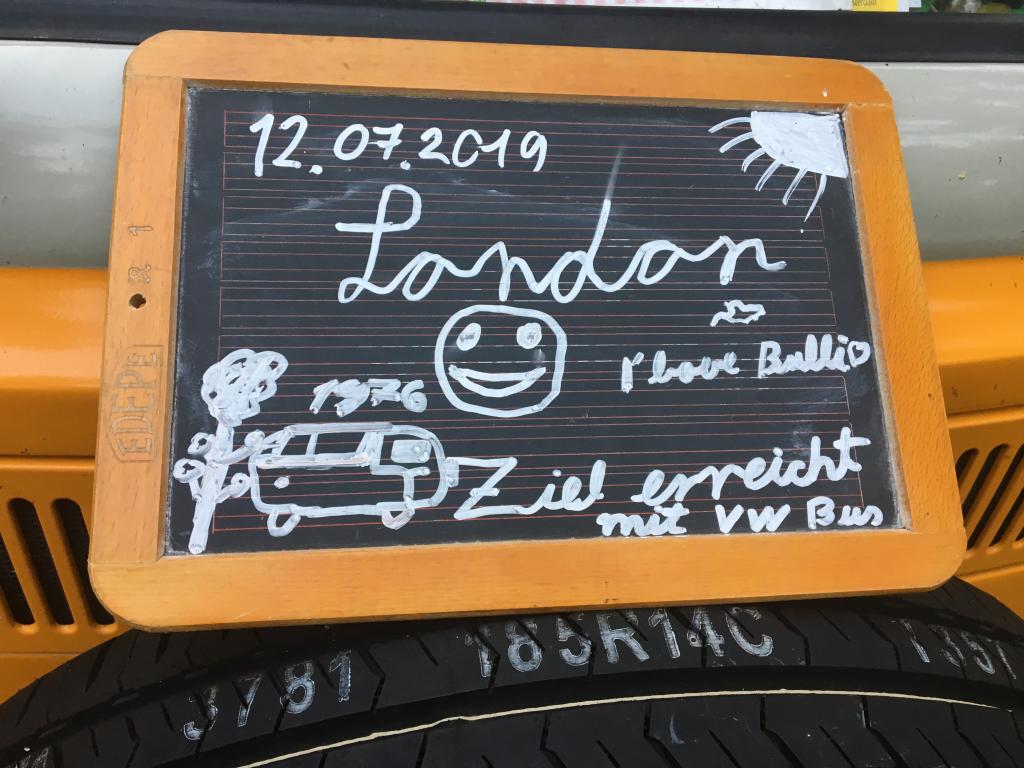 12.07.2019
London
I' love Bulli
1976
Ziel erreicht
mit VW Bus
EDEPE
R 1
3781 185R14C